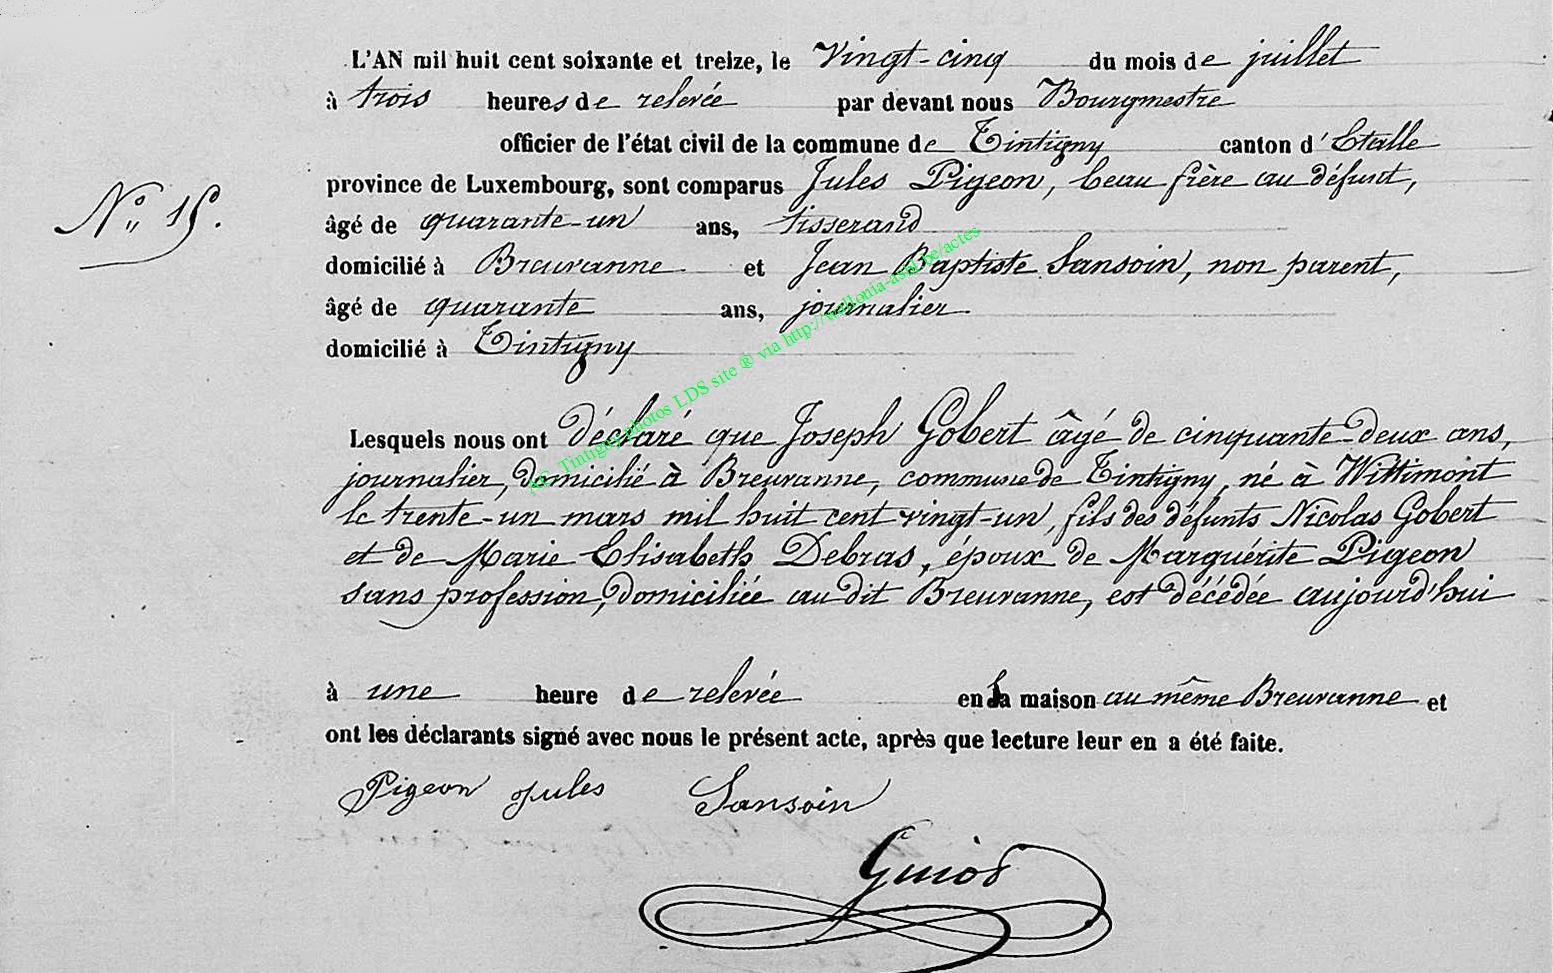 L'AN mil huit cent soixante et treize, le Vingt-cinq du mois de juillet
à trois heures de relevée par devant nous Bourgmestre
officier de l'état civil de la commune de Tintigny canton d'Etalle
N° 15.
province de Luxembourg, sont comparus Jules Pigeon, beau frère au défunt,
âgé de quarante-un ans, tisserand
domicilié à Breuvanne et Jean Baptiste Sansoin, non parent,
âgé de quarante ans, journalier
domicilié à Tintigny
AC Tintigny photos LDS site ® via http://wallonia-asbl.be/actes
Lesquels nous ont déclaré que Joseph Gobert âgé de cinquante-deux ans,
journalier, domicilié à Breuvanne, commune de Tintigny, né à Wittimont
le trente-un mars mil huit cent vingt-un, fils des défunts Nicolas Gobert
et de Marie Elisabeth Debras, époux de Marguérite Pigeon
sans profession, domiciliée au dit Breuvanne, est décédée aujourd'hui
à une heure de relevée en sa maison au même Breuvanne et
ont les déclarants signé avec nous le présent acte, après que lecture leur en a été faite.
Pigeon jules Sansoin